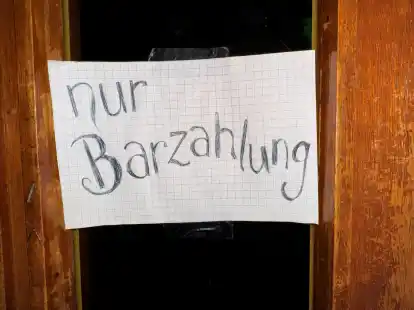 nur
Barzahlung